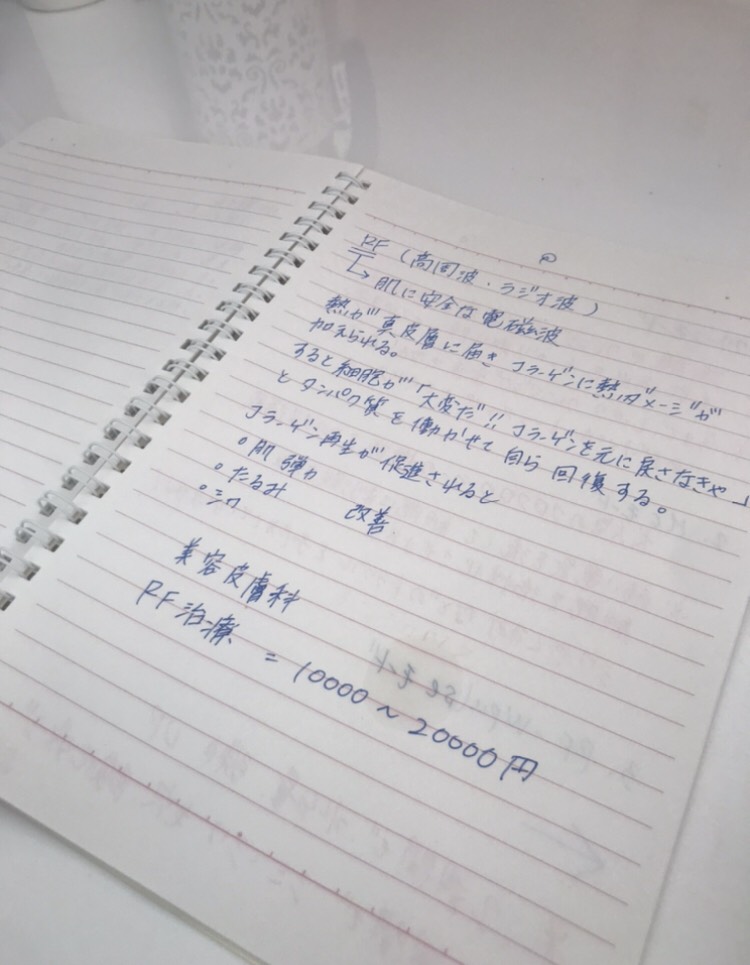 RF (高周波・ラジオ波)
↳ 肌に安全な電磁波
熱が真皮層に届きコラーゲンに熱ダメージが
加えられる。
すると細胞が「大変だ!! コラーゲンを元に戻さなきゃ」
とタンパク質を働かせて自ら回復する。
コラーゲン再生が促進されると
。肌弾力
。たるみ
。シワ 改善
美容皮膚科
RF治療 = 10000~20000円